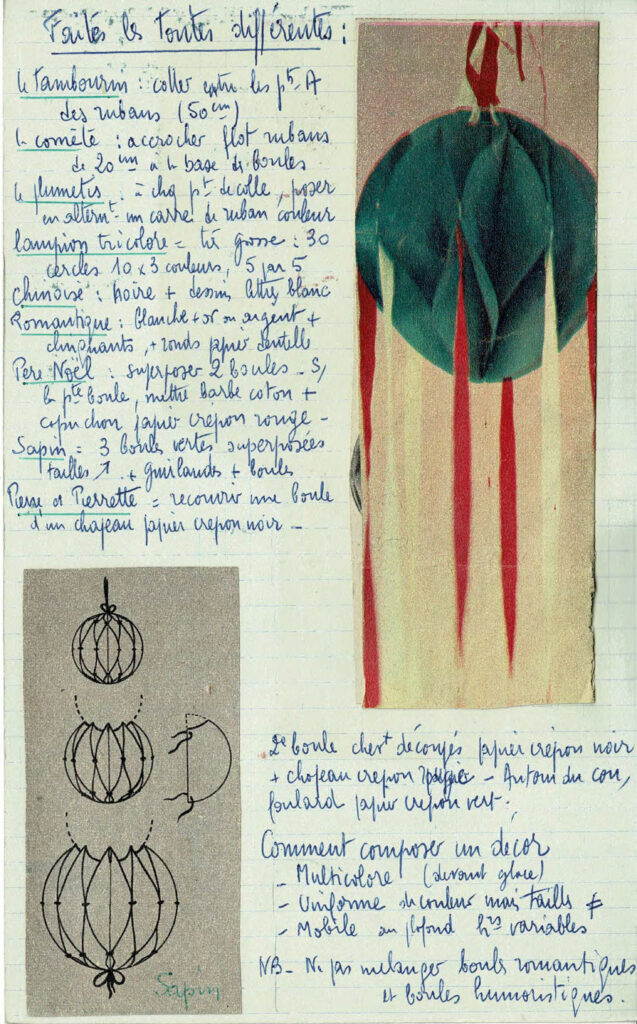 Faites les toutes différentes :
le tambourin : coller entre les pts A
des rubans (50 cm)
la comète : accrocher flot rubans
de 20 cm à la base des boules
le plumetis : à chq pt de colle, poser
en alternt un carré de ruban couleur
lampion tricolore = très grosse : 30
cercles 10 x 3 couleurs, 5 par 5
chinoise : noire + dessin lettres blanc
Romantique : blanche + or ou argent +
clinquants, + ronds papier dentelle
Père Noël : superposer 2 boules - S/
la pte boule, mettre barbe coton +
capuchon papier crépon rouge -
Sapin = 3 boules vertes superposées
tailles ↗ + guirlandes + boules
Pierre et Pierrette = recouvrir une boule
d'un chapeau papier crépon noir -
2e boule chevx découpés papier crépon noir
+ chapeau crépon - Autour du cou,
foulard papier crépon vert.
Comment composer un décor
- Multicolore (devant glace)
- Uniforme de couleur mais taille ≠
- Mobile au plafond hrs variables
NB - Ne pas mélanger boules romantiques
et boules humoristiques.
Sapin